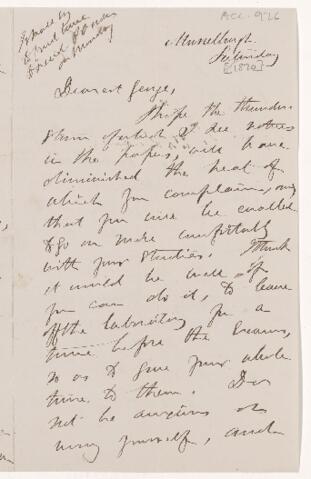 ACC. 926
Musselburgh,
Saturday
[1870]
on Monday
Dearest George,
I hope the thunder-
storm of which I see notices
in the papers, will have
diminished the heat of
which you complain, and
that you will be enabled
to go on more comfortably
with your studies. I think
it would be well if
you can do it, to leave
off the laboratory for a
time before the Exams,
so as to give your whole
time to them. Do
not be anxious or
worry yourself, and